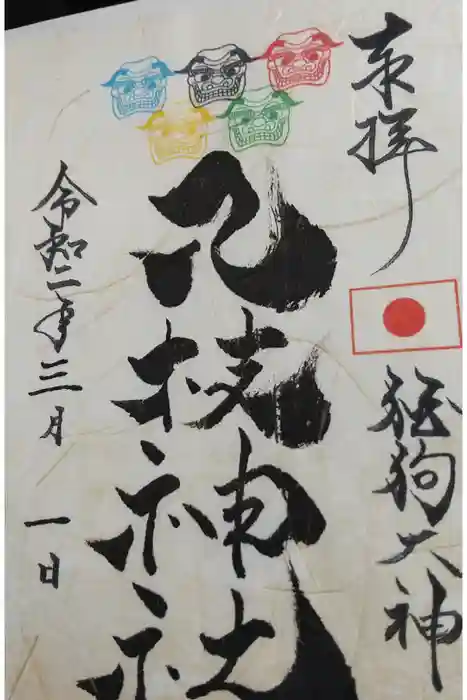 奉拝
狛狗大神
八枝神社
令和二年三月一日